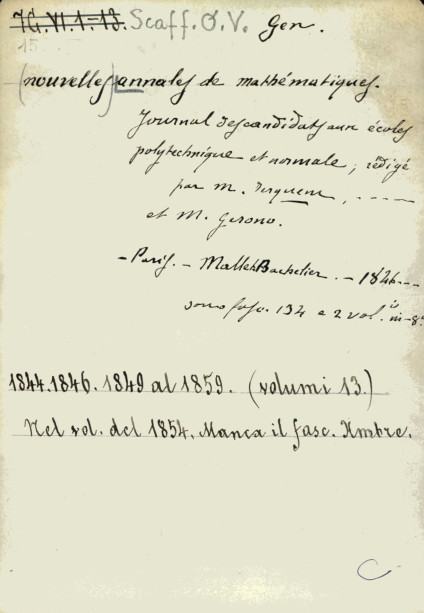 7G.VI.1-13. Scaff. O.V. Gen.
15
(nouvelles) annales de mathématiques.
Journal des candidats aux écoles
polytechnique et normale; rédigé
par M. Terquem, -----
et M. Gerono.
- Paris. - Mallet Bachelier. - 1846---
sono fasc. 134 e 2 vol. in-8º
1844. 1846. 1849 al 1859. (volumi 13.)
Nel vol. del 1854. Manca il fasc. Xmbre.
C